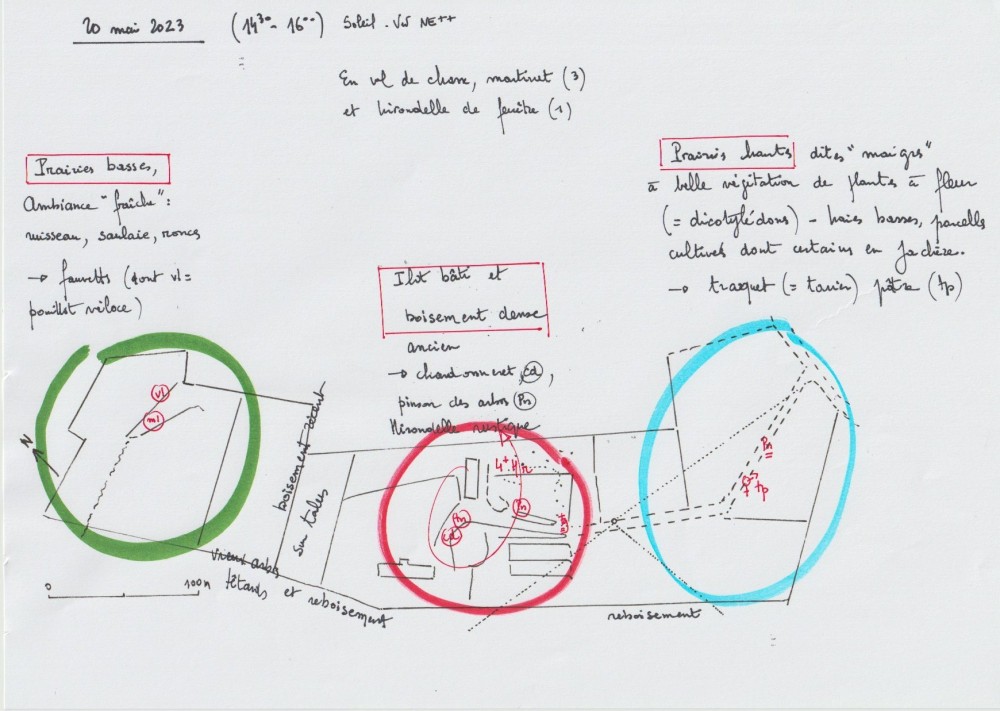 20 mai 2023 (14³⁰- 16⁰⁰) Soleil - Vt NE++
En vol de chasse, martinet (3)
et hirondelle de fenêtre (1)
Prairies basses,
Ambiance "fraîche" :
ruisseau, saulaie, ronces
→ fauvettes (dont vl =
pouillot véloce)
Ilot bâti et
boisement dense
ancien
→ chardonneret, cd,
pinson des arbres Pn
Hirondelle rustique
Prairies hautes dites "maigres"
à belle végétation de plantes à fleur
(= dicotylédons) - haies basses, parcelles
cultivés dont certains en jachère.
→ traquet (= tarier) pâtre (tp)
vl
ml
N
boisement récent
sur talus
4+ Hr
Pn
Pn
cd
Pn
tp
vieux arbres
têtards et reboisement
reboisement
0 100m